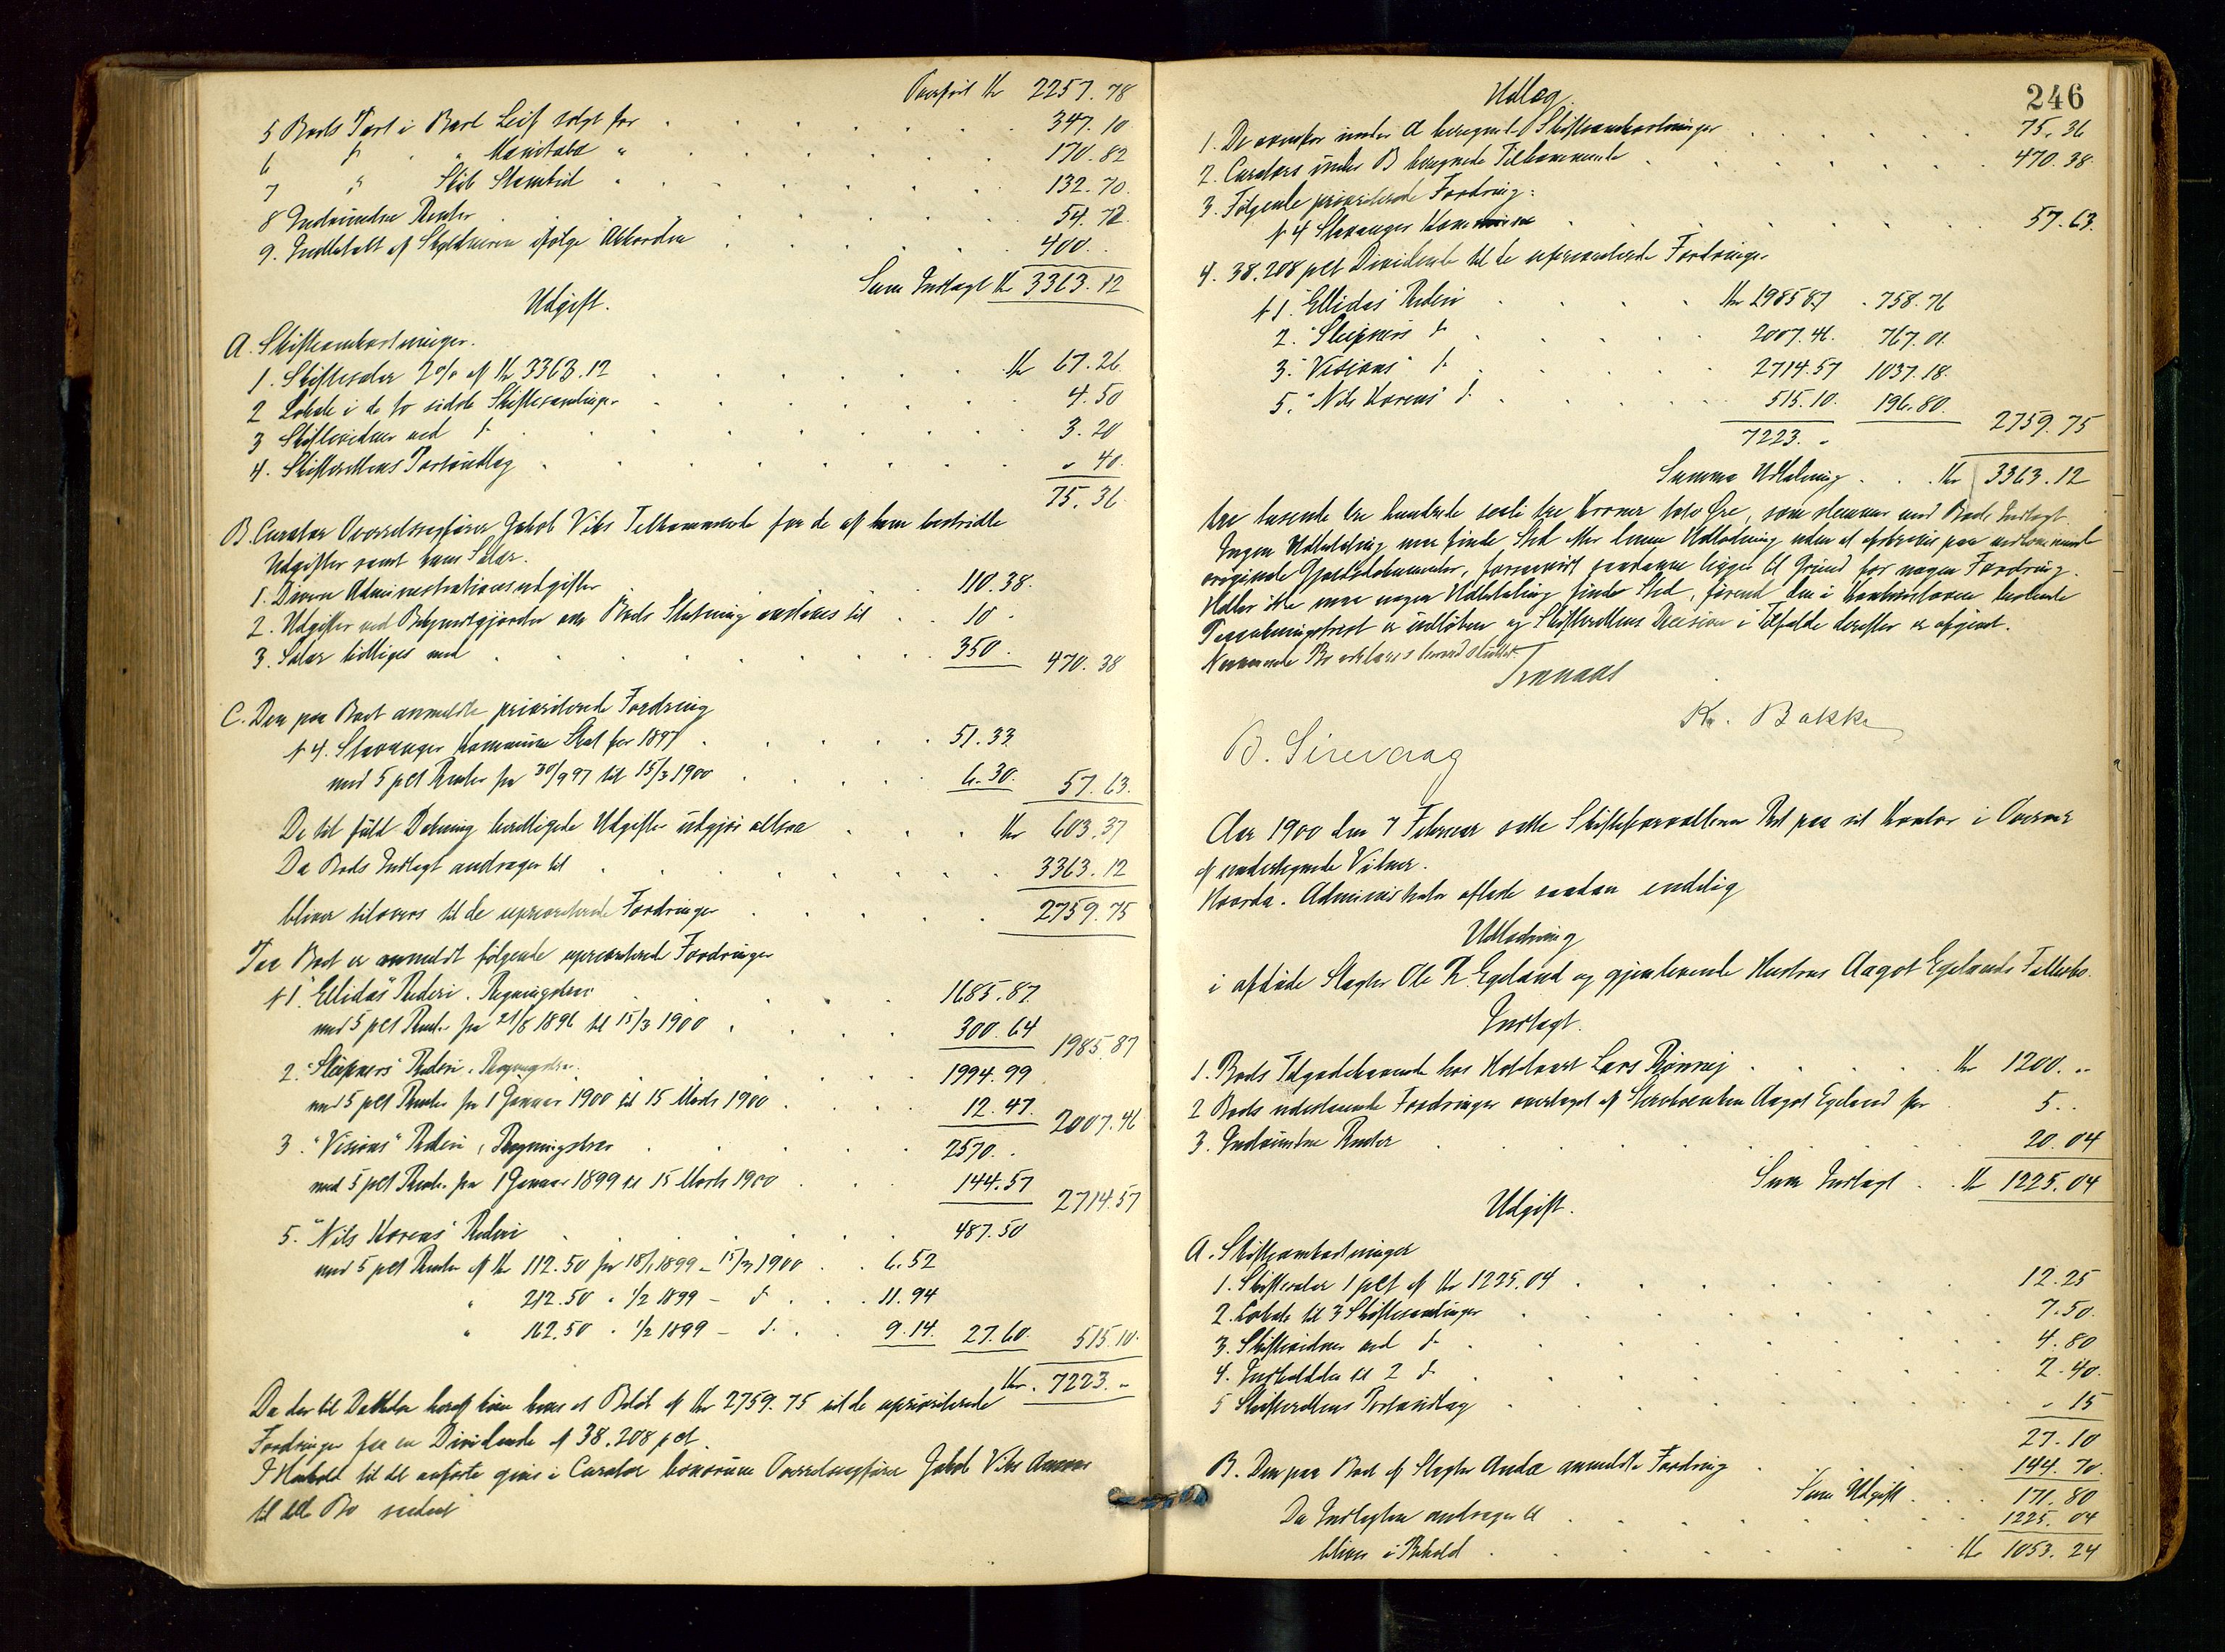 Overført Kr 2257.78
5 Boets Part i Bark Leif solgt for 347.10
6 d " Manitoba " 170.82
7 " Skib Stambul " 132.70
8 Indvundne Renter 54.72
9. Indbetalt af Skyldneren ifølge Akkorden 400.
Sum Indtægt Kr 3363.12
Udgift.
A. Skifteomkostninger.
1. Skiftesalær 2% af Kr 3363.12 Kr 67.26
2 Lokale i de to sidste Skiftesamlinger 4.50
3 Skiftevidner ved d 3.20
4. Skifterettens Portoudlæg " 40.
75.36
B. Curator Overretssagfører Jakob Viks Tilkommende for de af ham bestridte
Udgifter samt hans Salær.
1. Diverse Administrationsudgifter 110.38.
2. Udgifter ved Bekjendtgjørelse om Boets Slutning ansættes til 10.
3. Salær billiges med 350. 470.38
C. Den paa Boet anmeldte prioriterede Fordring
№ 4. Stavanger Kommune Skat for 1897 51.33
med 5 pct Renter fra 30/9 97 til 15/3 1900 6.30. 57.63.
De til fuld Dækning berettigede Udgifter udgjør altsaa Kr 603.37
Da Boets Indtægt andrager til 3363.12
bliver tilovers til de uprioriterede Fordringer 2759.75
Paa Boet er anmeldt følgende uprioriterede Fordringer
№ 1 "Ellidas" Rederi. Regningskrav 1685.87.
med 5 pct Renter fra 21/8 1896 til 15/3 1900 300.64 1985.87
2. "Sleipners" Rederi. Regningskrav 1994.99
med 5 pct Renter fra 1 Januar 1900 til 15 Marts 1900 12.47. 2007.46
3. "Visions" Rederi, Regningskrav 2570..
med 5 pct Renter fra 1 Januar 1899 til 15 Marts 1900 144.57 2714.57
5. "Nils Korens" Rederi 487.50
med 5 pct Renter af Kr 112.50 fra 18/1 1899 – 15/3 1900 6.52
" 212.50 " 1/2 1899 – d. 11.94
" 162.50 " 1/2 1899 – d. 9.14. 27.60. 515.10.
Kr. 7223. "
Da der til Dækkelse heraf kun haves et Beløb af Kr 2759.75 vil de uprioriterede
Fordringer faa en Dividende af 38.208 pct.
I Henhold til det anførte gives i Curator bonorum Overretssagfører Jakob Viks
til dette Bo saadant
246
Udlæg
1. De ovenfor under A beregnede Skifteomkostninger 75.36
2. Curators under B beregnede Tilkommende 470.38.
3. Følgende prioriterede Fordring:
№ 4 Stavanger Kommune 57.63.
4. 38.208 pct Dividende til de uprioriterede Fordringer
№ 1. "Ellidas" Rederi Kr 1985.87 758.76
2. "Sleipners" d 2007.46. 767.01.
3. "Visions" d 2714.57 1037.18.
5. "Nils Korens" d 515.10. 196.80.
7223. " 2759.75
Summa Udlodning Kr 3363.12
tre tusende tre hundrede seksti tre Kroner tolv Øre, som stemmer med Boets Indtægt
Ingen Udbetaling maa finde Sted efter denne Udlodning uden at afskrives paa vedkommende
originale Gjældsdokumenter, forsaavidt saadanne ligger til Grund for nogen Fordring.
Heller ikke maa nogen Udbetaling finde Sted, førend den i Konkursloven bestemte
Paaankningsfrist er udløben og Skifterettens Decision i Tilfælde derefter er afgjort.
Nærværende Bo erklæres herved sluttet.
Tranaas
Kr. Bakke
B. Sirevaag
Aar 1900 den 7 Februar satte Skifteforvalteren Ret paa sit Kontor i Overvær
af undertegnede Vidner.
Hvorda. Administrator afsagde saadan endelig
Udlodning
i afdøde Slagter Ole R. Egeland og gjenlevende Hustrus Aagot Egelands Fællesbo.
Indtægt.
1. Boets Tilgodehavende hos Lars Rønnevig Kr 1200. "
2 Boets udestaaende Fordringer overtaget af Aagot Egeland for 5. "
3. Indvundne Renter 20.04
Sum Indtægt Kr 1225.04
Udgift.
A. Skifteomkostninger
1. Skiftesalær 1 pct af Kr 1225.04 12.25
2. Lokale til 3 Skiftesamlinger 7.50.
3. Skiftevidner ved d 4.80
4. Indkaldelse til 2 d 2.40.
5 Skifterettens Portoudlæg " 15
27.10
B. Den paa Boet af Slagter Anda anmeldte Fordring 144.70.
Sum Udgift 171.80
Da Indtægten andrager til 1225.04
bliver i Behold Kr 1053.24